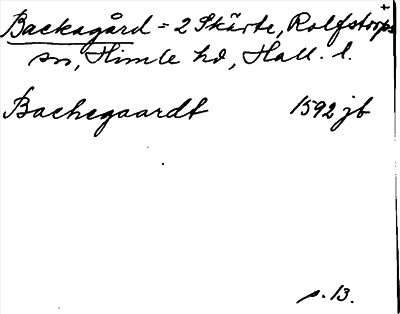 Backagård = 2 Skärte, Rolfstorps
sn, Himle hd, Hall. l.
Bachegaardt 1592 jb
s. 13.